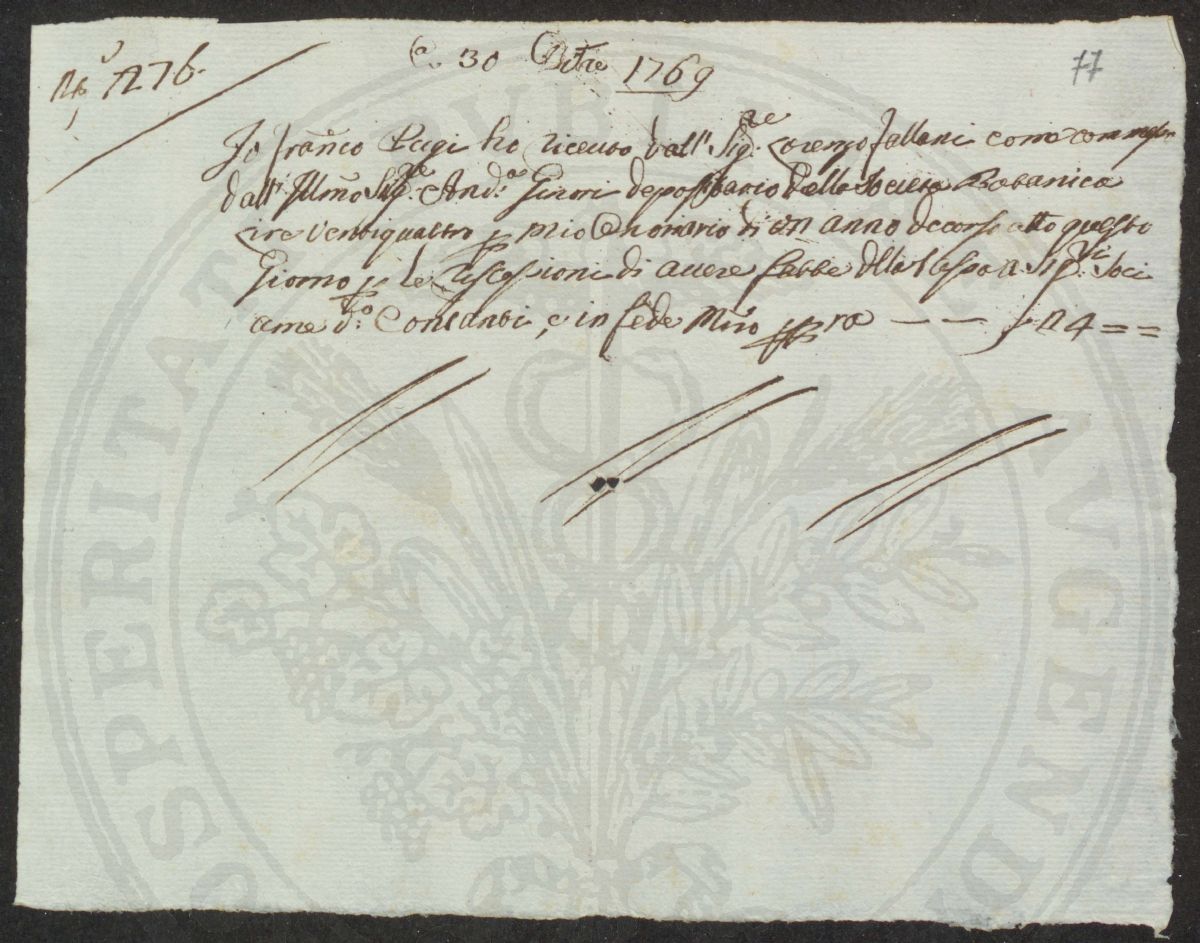 N.º 276.
A. 30 Ottre 1769
77
Io Franco Pugi ho riceuto dall' Sigre Lorenzo Fallani come commesso
dall' Illmo Sigre Anda Ginori depositario della Società Botanica
Lire Ventiquattro p mio Onorario di un anno decorso a tutto questo
Giorno p le Riscossioni di avere fatte della Taspa a Sigri Soci
a me do Contanti, e in fede Mno ppra — — £ 24 = =
PROSPERITATI PVBLICAE AVGENDAE